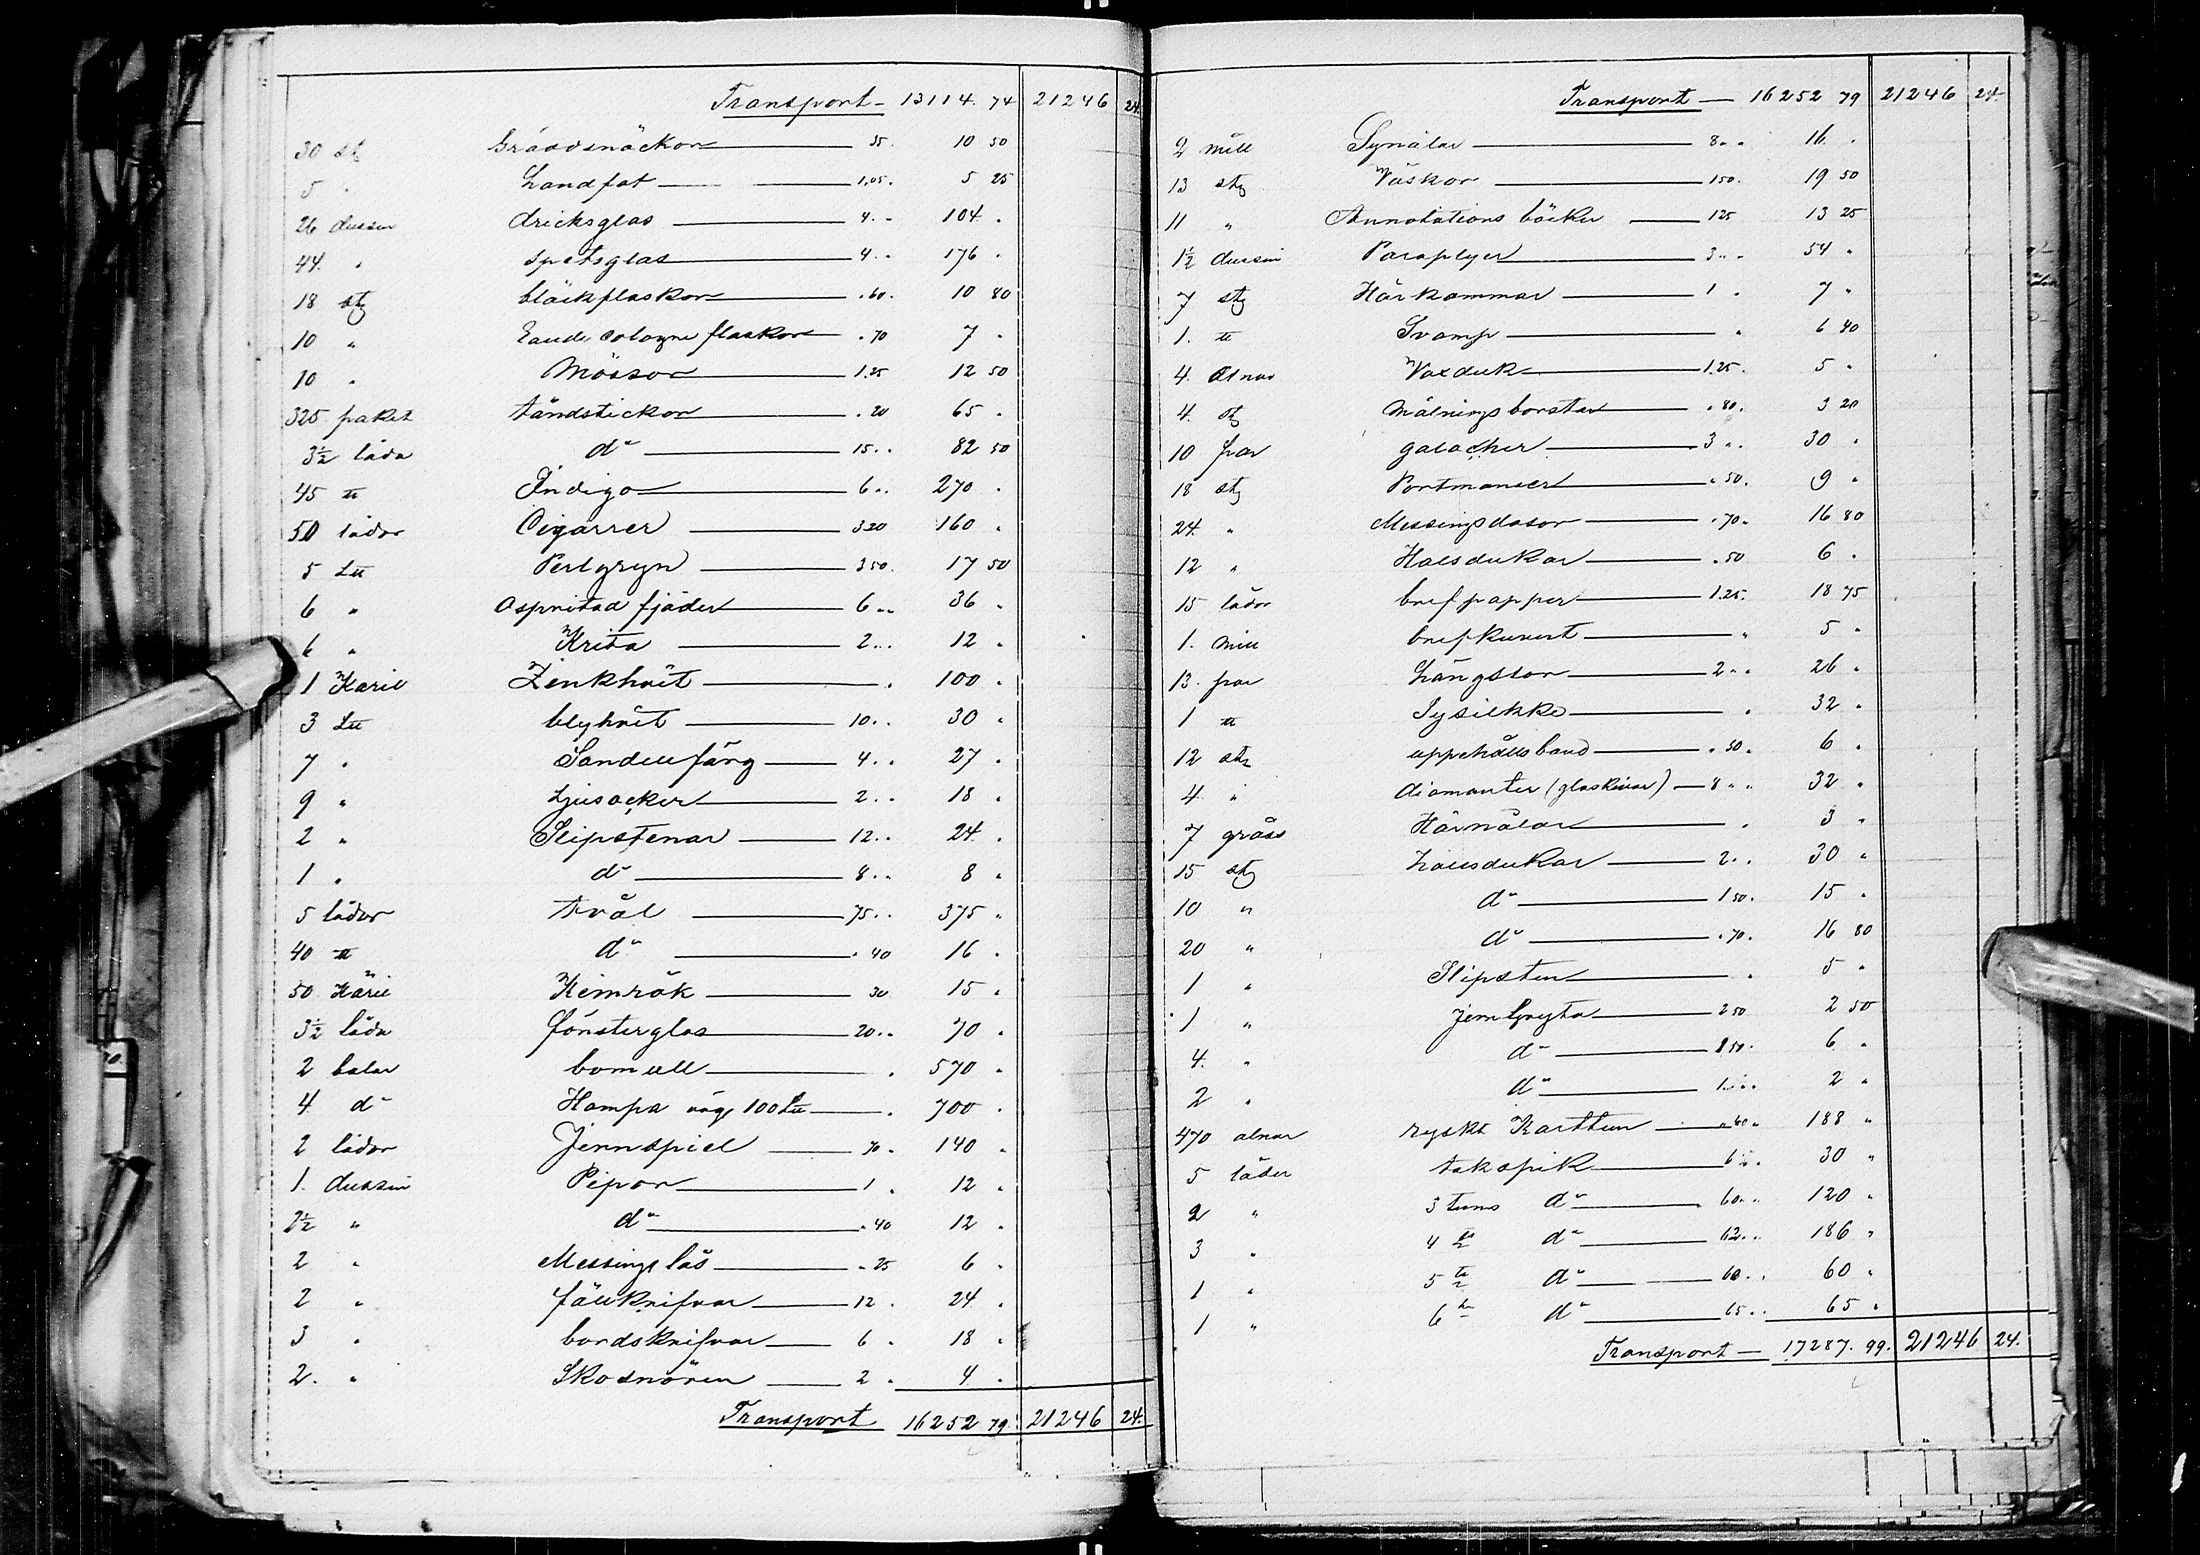 Transport — 13114. 74 21246 24.
30 stz Gräddsnäckor 35. 10 50
5 " handfat 1,05. 5 25
26 dussin dricksglas 4. " 104. "
44. " spetsglas 4. " 176 "
18 stz bläckflaskor " 60. 10 80
10 " Eaude cologne flaskor " 70 7 "
10 " Mössor 1.25 12 50
325 paket tändstickor " 20 65 "
3½ låda d:o 15. " 82 50
45 ℔ Indigo 6. " 270 "
50 lådor Cigarrer 3 20 160 "
5 L℔ Perlgryn 3 50. 17 50
6 " Ospritad fjäder 6 " " 36 "
6 " Krita 2. " 12 "
1 Käril Zinkhvit " 100 "
3 L℔ blyhvit 10. " 30 "
7 " Sandellfärg 4. " 27 "
9 " Ljusacker 2. " 18 "
2 " Slipstenar 12. " 24. "
1 " d:o 8. " 8 "
5 lådor tvål 75. " 375 "
40 ℔ d:o " 40 16 "
50 Käril Kimrök 30 15 "
3½ låda fönsterglas 20. " 70 "
2 balar bomull " 570 "
4 d:o Hampa väg. 100 L℔ " 700 "
2 lådor Jernspiel 70. 140 "
1. dussin Pipor 1 " 12 "
2½ " d:o " 40 12 "
2 " Messings lås " 25 6 "
2 " fällknifvar 12 " 24 "
3 " bordsknifvar 6 " 18 "
2. " Skosnören 2 " 4 "
Transport 16252 79. 21246 24.
Transport — 16252 79. 21246 24.
2 mill Synålar 8 " " 16. "
13 stz Väskor 150. 19 50
11 " Annotations böcker 125 13 25
1½ dussin Paraplyer 3 " " 54 "
7 stz Hårkammar 1 " 7 "
1. ℔ Svamp " 6 40
4. alnar Vaxduk 1.25. 5 "
4. st Målnings borstar " 80. 3 20
10 par galocher 3 " " 30 "
18 stz Portmonäer " 50. 9 "
24. " Messingsdosor " 70 " 16 80
12 " Halsdukar " 50 6 "
15 lådor brefpapper 1.25. 18 75
1. mill brefkuvert " 5 "
13. par hängslor 2 " " 26 "
1 ℔ Sysilkke " 32 "
12 stz uppehålls band " 50. 6 "
4. " diamanter (glaskivar) 8 " " 32 "
7 gråss Hårnålar " 3 "
15 stz halsdukar 2. " 30 "
10 " d:o 1 50. 15 "
20 " d:o " 70. 16 80
1 " Slipsten " 5 "
1 " Jern Gryta 2 50 2 50
4. " d:o 1 50. 6 "
2 " d:o 1. " " 2 "
470 alnar ryskt Karttun " 40 " 188 "
5 lådor takspik 6. " 30 "
2 " 3 tums d:o 60 " " 120 "
3 " 4 d:o 62. " 186 "
1 " 5 d:o 60. " 60 "
1 " 6 d:o 65. " 65 "
Transport — 17287. 99. 21246 24.